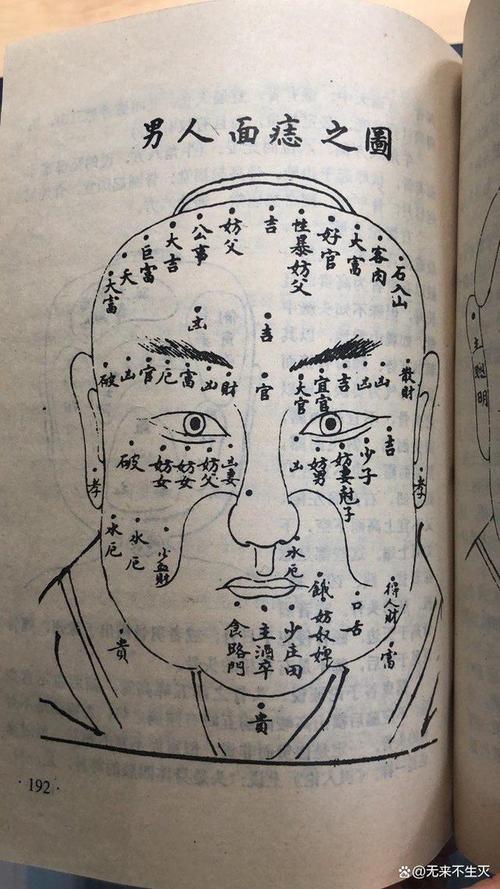 男人面痣之圖
大富
夭
巨富
大吉
公事
妨父
吉
性暴妨父
好官
大富
客肉
石入山
凶
吉
破
凶
官
厄
富
凶
財
官
大官
宜官
吉
凶
凶
散財
破
妨女
妨女
妨父
凶
妨男
妨妻尅子
少子
吉
孝
孝
水厄
水厄
水厄
得人財
貴
食路門
主酒卒
少庄田
餓
妨奴婢
口舌
富
貴
主聰明
192
@无来不生灭